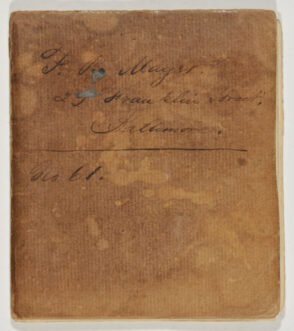 F. B. Mayer.
29 Franklin Street,
Baltimore.
No. 61.